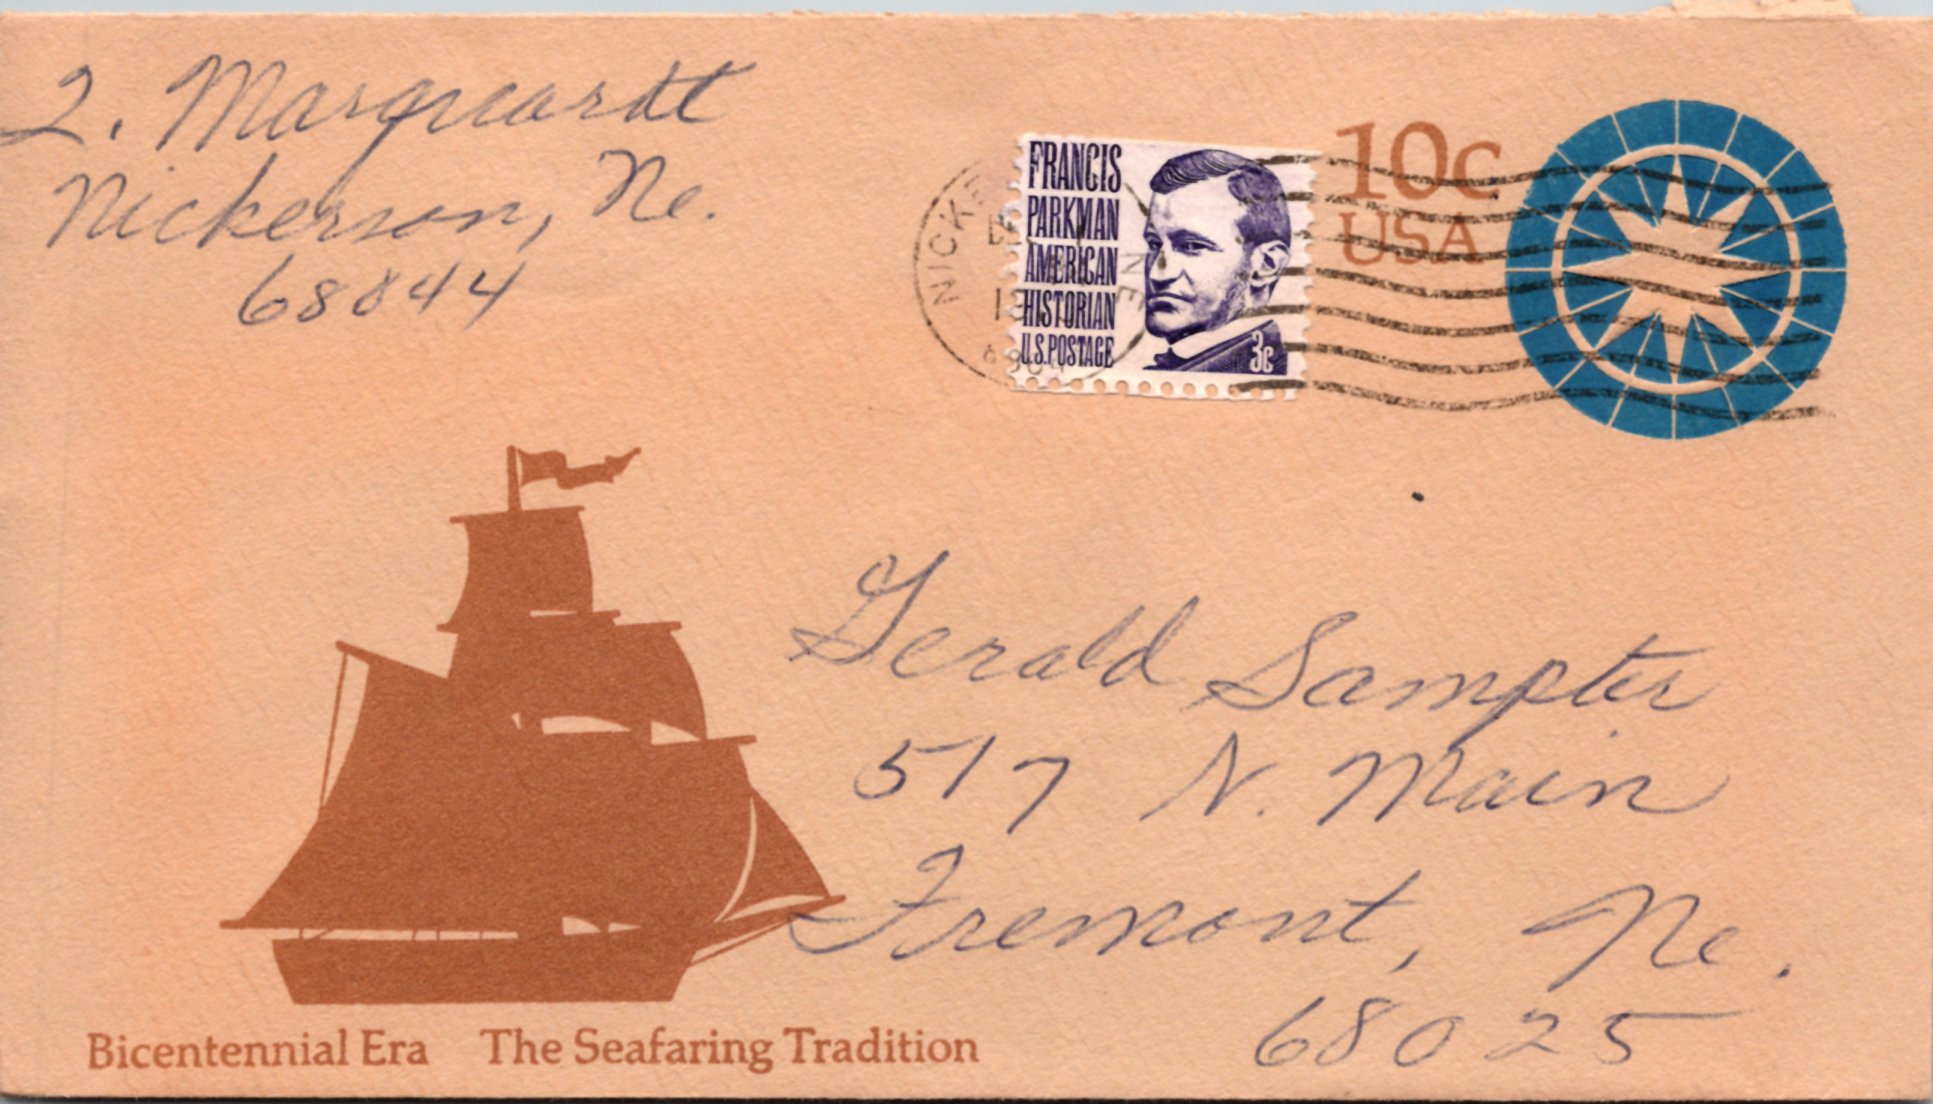 L. Marquardt
Nickerson, Ne.
68044
FRANCIS
PARKMAN
AMERICAN
HISTORIAN
U.S.POSTAGE
3c
10c
USA
NE
Gerald Sampter
517 N. Main
Fremont, Ne.
68025
Bicentennial Era The Seafaring Tradition